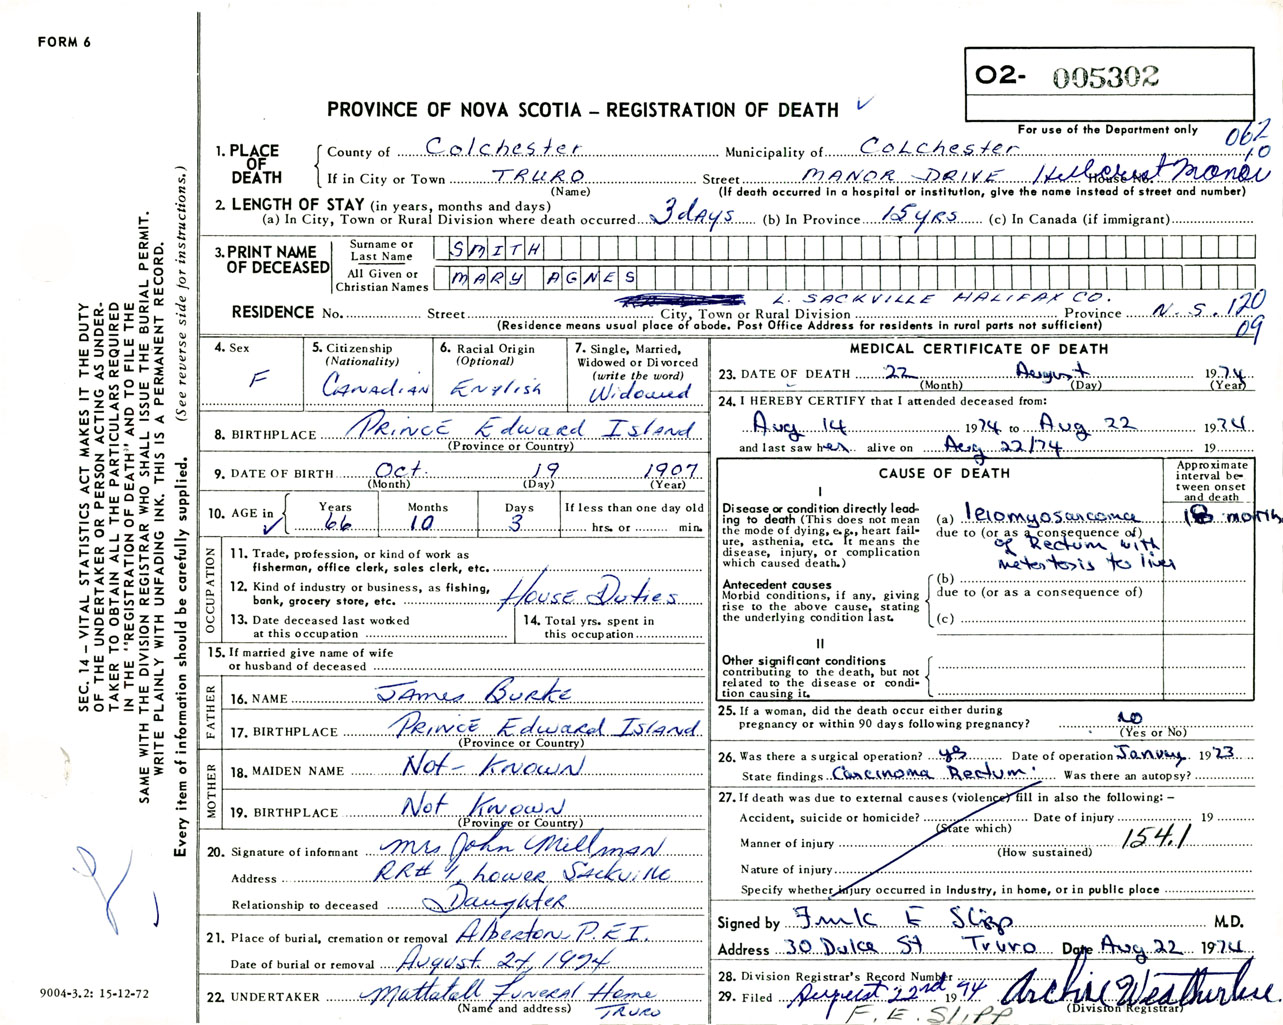 FORM 6
O2- 005302
PROVINCE OF NOVA SCOTIA – REGISTRATION OF DEATH ✓
For use of the Department only
062
10
1. PLACE OF DEATH
County of Colchester Municipality of Colchester
If in City or Town TRURO Street MANOR DRIVE House No. Hillcrest Manor
(Name) (If death occurred in a hospital or institution, give the name instead of street and number)
2. LENGTH OF STAY (in years, months and days)
(a) In City, Town or Rural Division where death occurred 3 days (b) In Province 15 yrs (c) In Canada (if immigrant)
3. PRINT NAME OF DECEASED
Surname or Last Name SMITH
All Given or Christian Names MARY AGNES
L. SACKVILLE HALIFAX CO.
RESIDENCE No. Street City, Town or Rural Division Province N.S. 120
(Residence means usual place of abode. Post Office Address for residents in rural parts not sufficient) 09
4. Sex
F
5. Citizenship
(Nationality)
Canadian
6. Racial Origin
(Optional)
English
7. Single, Married,
Widowed or Divorced
(write the word)
Widowed
8. BIRTHPLACE Prince Edward Island
(Province or Country)
9. DATE OF BIRTH Oct. 19 1907
(Month) (Day) (Year)
10. AGE in ✓
Years Months Days If less than one day old
66 10 3 hrs. or min.
OCCUPATION
11. Trade, profession, or kind of work as
fisherman, office clerk, sales clerk, etc.
12. Kind of industry or business, as fishing,
bank, grocery store, etc. House Duties
13. Date deceased last worked
at this occupation
14. Total yrs. spent in
this occupation
15. If married give name of wife
or husband of deceased
FATHER
16. NAME James Burke
17. BIRTHPLACE Prince Edward Island
(Province or Country)
MOTHER
18. MAIDEN NAME Not - Known
19. BIRTHPLACE Not Known
(Province or Country)
20. Signature of informant Mrs John Millman
Address RR# 1, Lower Sackville
Relationship to deceased Daughter
21. Place of burial, cremation or removal Alberton P.E.I.
Date of burial or removal August 24, 1974
22. UNDERTAKER Mattatall Funeral Home
(Name and address) TRURO
MEDICAL CERTIFICATE OF DEATH
23. DATE OF DEATH 22 August 1974
(Month) (Day) (Year)
24. I HEREBY CERTIFY that I attended deceased from:
Aug 14 1974 to Aug 22 1974
and last saw her alive on Aug 22/74 19
CAUSE OF DEATH
Approximate
interval be-
tween onset
and death
I
Disease or condition directly lead-
ing to death (This does not mean
the mode of dying, e.g., heart fail-
ure, asthenia, etc. It means the
disease, injury, or complication
which caused death.)
(a) leiomyosarcoma 18 months
due to (or as a consequence of)
of Rectum with
metastosis to liver
Antecedent causes
Morbid conditions, if any, giving
rise to the above cause, stating
the underlying condition last.
(b)
due to (or as a consequence of)
(c)
II
Other significant conditions
contributing to the death, but not
related to the disease or condi-
tion causing it.
25. If a woman, did the death occur either during
pregnancy or within 90 days following pregnancy? no
(Yes or No)
26. Was there a surgical operation? yes Date of operation January 1973
State findings Carcinoma Rectum. Was there an autopsy?
27. If death was due to external causes (violence) fill in also the following: –
Accident, suicide or homicide? Date of injury 19
(State which)
Manner of injury 154.1
(How sustained)
Nature of injury
Specify whether injury occurred in Industry, in home, or in public place
Signed by Frank E Slipp M.D.
Address 30 Dulce St Truro Date Aug 22 1974
28. Division Registrar's Record Number
29. Filed August 22nd 1974 Archie Weatherbee
(Division Registrar)
F. E. SLIPP
SEC. 14 – VITAL STATISTICS ACT MAKES IT THE DUTY
OF THE UNDERTAKER OR PERSON ACTING AS UNDER-
TAKER TO OBTAIN ALL THE PARTICULARS REQUIRED
IN THE "REGISTRATION OF DEATH" AND TO FILE THE
SAME WITH THE DIVISION REGISTRAR WHO SHALL ISSUE THE BURIAL PERMIT.
WRITE PLAINLY WITH UNFADING INK. THIS IS A PERMANENT RECORD.
Every item of information should be carefully supplied. (See reverse side for instructions.)
9004-3.2: 15-12-72